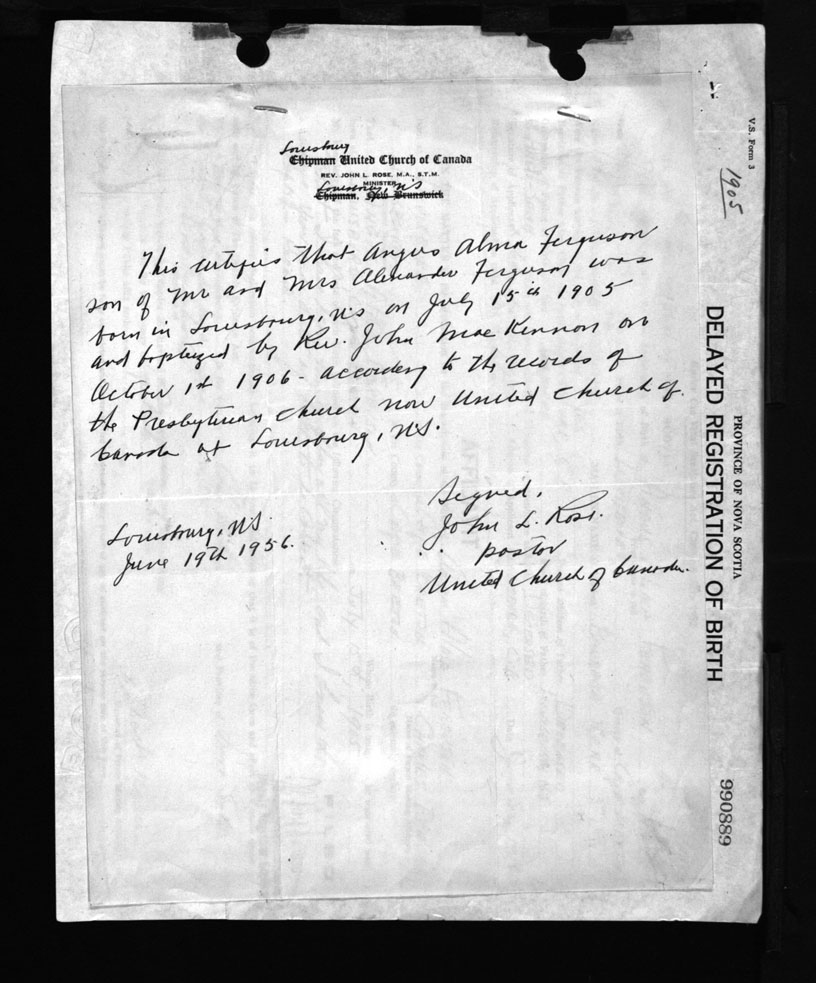 Louisburg
Chipman United Church of Canada
REV. JOHN L. ROSE, M.A., S.T.M.
MINISTER
Louisburg, N.S
Chipman, New Brunswick
This certifies that Angus Alma Ferguson
son of Mr and Mrs Alexander Ferguson was
born in Louisbourg, N.S on July 15 1905
and baptized by Rev. John MacKinnon on
October 1st 1906 - according to the records of
the Presbyterian Church now United Church of
Canada at Louisbourg, N.S.
Signed,
John L. Rose.
pastor
United Church of Canada.
Louisbourg, N.S.
June 19th 1956.
V.S. Form 3
1905
PROVINCE OF NOVA SCOTIA
DELAYED REGISTRATION OF BIRTH
990889